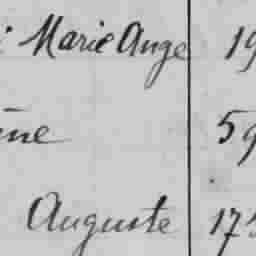 Marie Ange 19
ine 59
Auguste 17